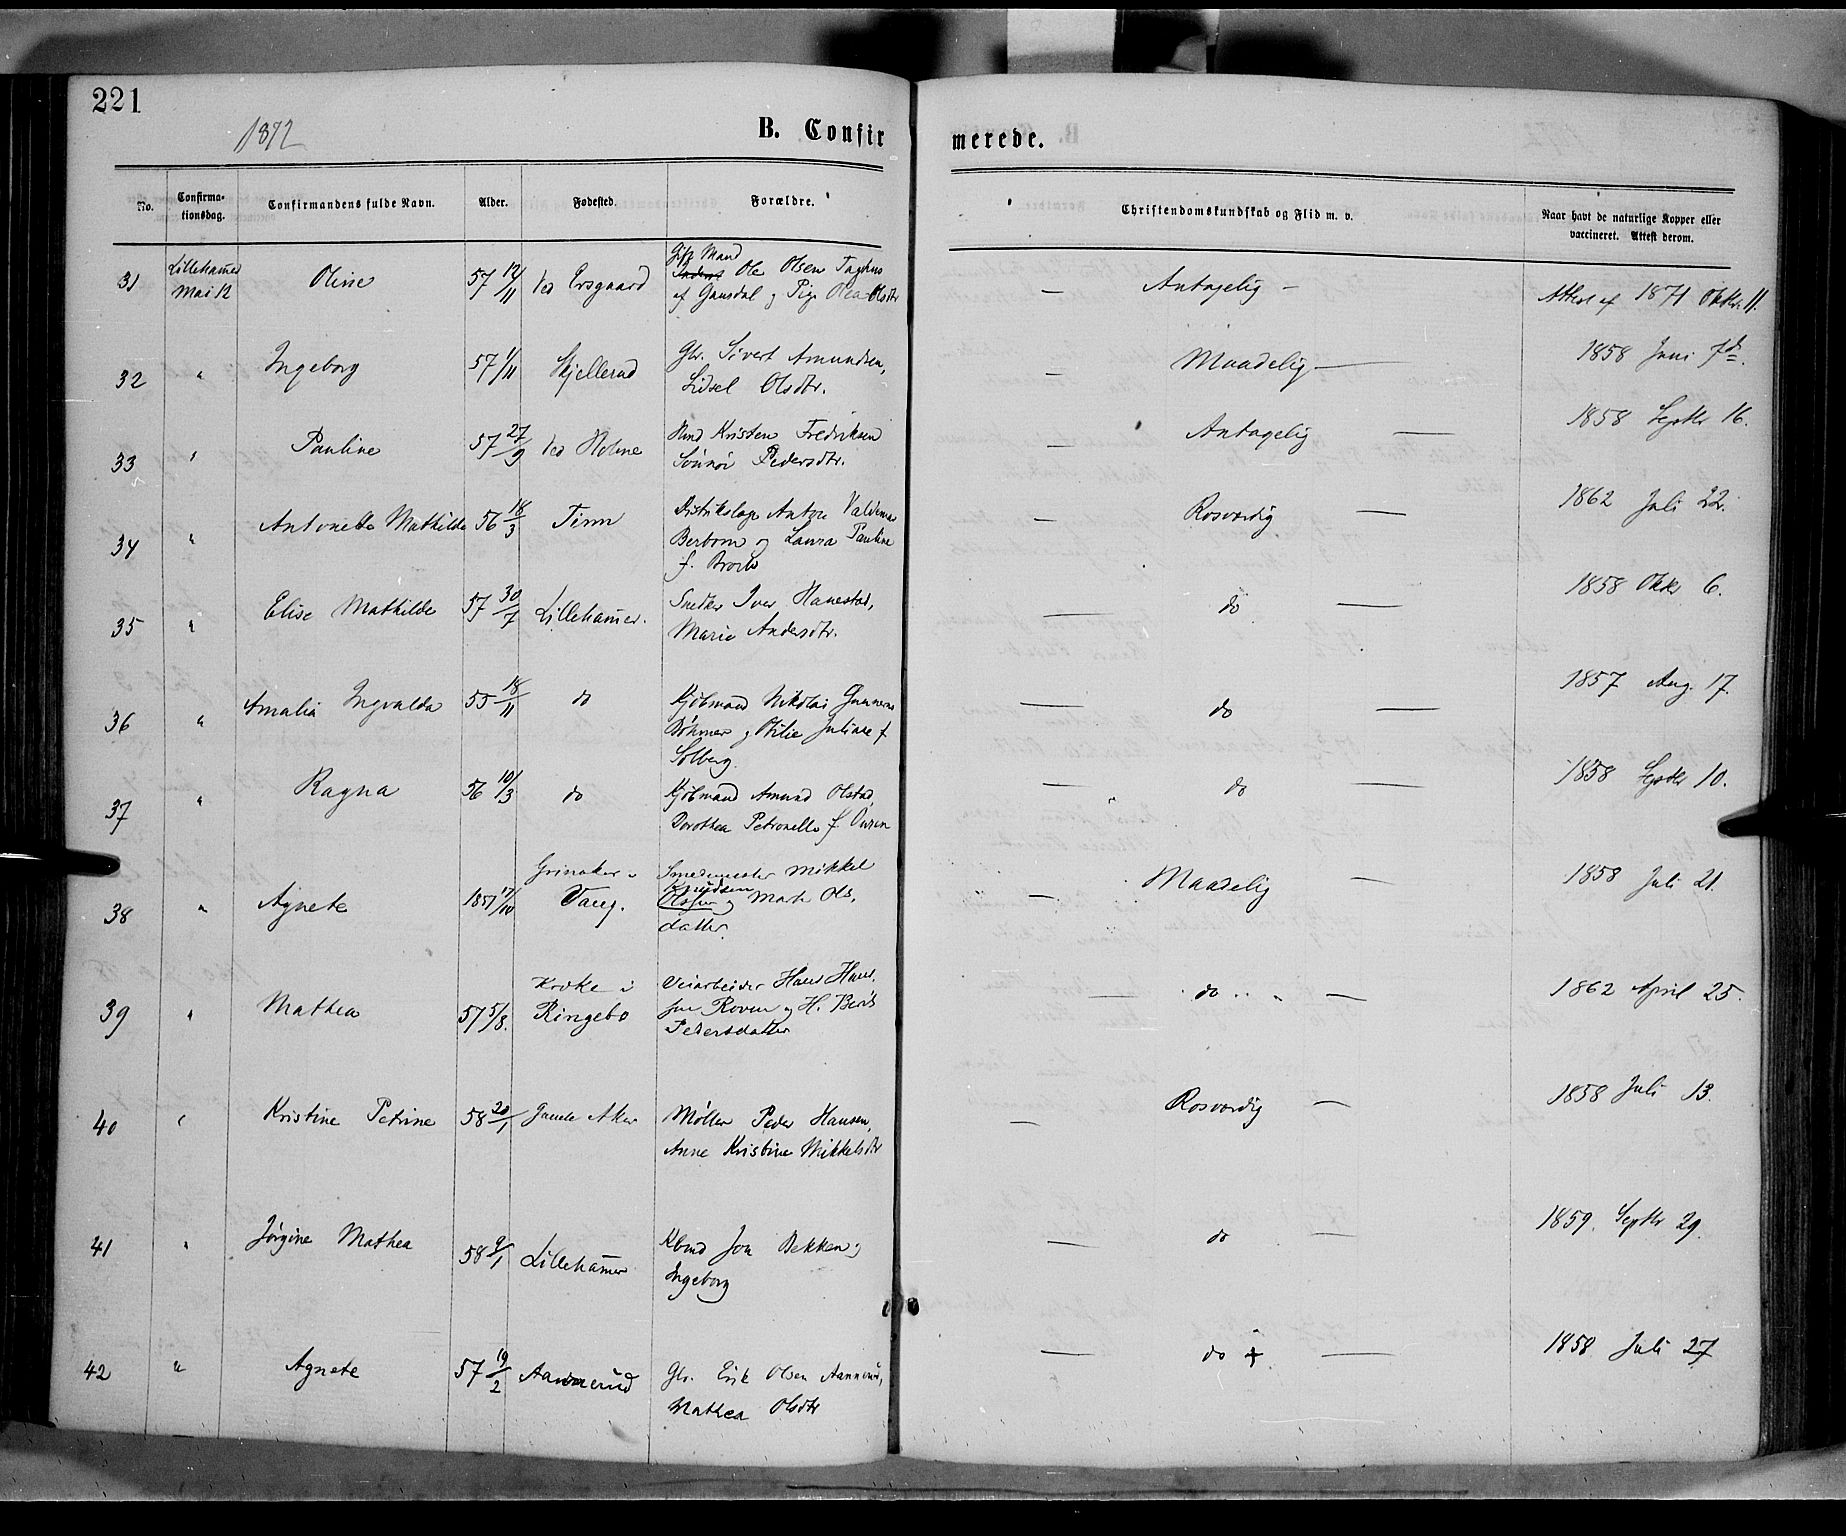 221
1872
B. Confirmerede.
No. Confirmationsdag. Confirmandens fulde Navn. Alder. Fødested. Forældre. Christendomskundskab og Flid m. v. Naar havt de naturlige Kopper eller vaccineret. Attest derom.
31 Lillehamer Mai 12 Oline 57 12/11 ved Ersgaard Gift Mand Ole Olsen
af Gausdal og Pige Olea Olsdtr — Antagelig — Attest af 1871 Oktbr. 11.
32 " Ingeborg 57 1/11 Skjellerud Gbr. Sivert Amundsen,
Lidsel Olsdtr. — Maadelig — 1858 Juni 7de.
33 " Pauline 57 27/9 ved Holme Hmd Kristen Fredriksen
Pedersdtr. — Antagelig — 1858 Septbr 16.
34 " Antonette Mathilde 56 18/3 Tinn Distriktslæge Anton Valdemar
og Laura Pauline
f. — Rosværdig — 1862 Juli 22.
35 " Elise Mathilde 57 30/7 Lillehamer. Snedker Iver Hanestad,
Marie Andersdtr. — do — 1858 Oktbr 6.
36 " Amalia Ingvalda 55 18/11 do Kjøbmand Nikolai Gunnerus
Bøhmer og Otilie Juliane f.
Solberg. — do — 1857 Aug. 17.
37 " Ragna 56 10/3 do Kjøbmand Amund Olstad,
Dorothea Petronelle f. — do — 1858 Septbr 10.
38 " Agnete 1857 17/10 Grinaker i
Vang. Smedmester Mikkel
Knudsen
Olsen og Marte Ols,
datter. — Maadelig — 1858 Juli 21.
39 " Mathea 57 5/8. Kroke i
Ringebo Veiarbeider Hans Hans,
sen Roven og H. Berit
Pedersdatter — do " " — 1862 April 25.
40 " Kristine Petrine 58 20/1 Gamle Aker Møller Peder Hansen,
Anne Kristine Mikkelsdtr — Rosværdig — 1858 Juli 13.
41 " Jørgine Mathea 58 9/1 Lillehamer Kbmd Jon Bekken og
Ingeborg — do — 1859. Septbr 29.
42 " Agnete 57 19/2 Aannerud Gbr. Erik Olsen Aannerud,
Mathea Olsdtr — do — 1858 Juli 27